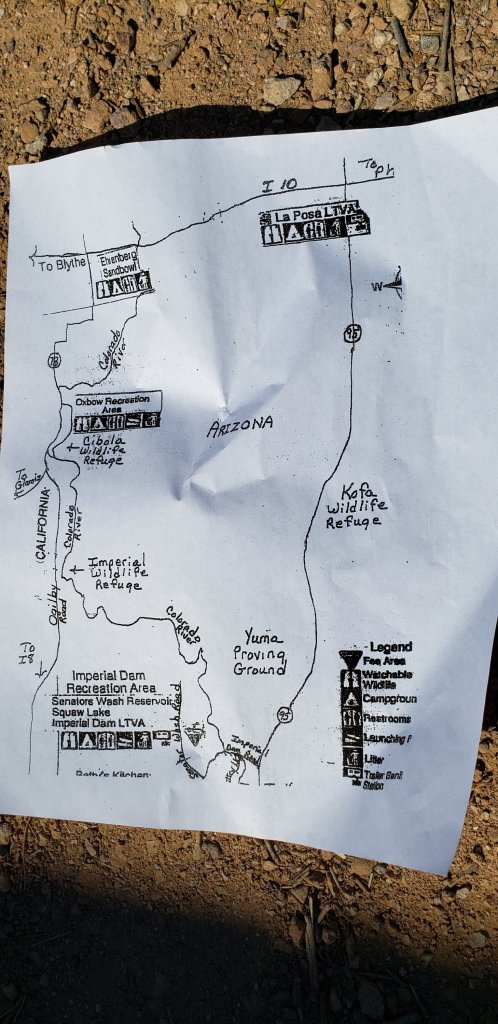 To
Ph
I 10
La Posa LTVA
To Blythe
Ehrenberg
Sandbowl
W
95
78
Colorado
River
Oxbow Recreation
Area
ARIZONA
← Cibola
Wildlife
Refuge
To
Glamis
CALIFORNIA
Colorado
River
Kofa
Wildlife
Refuge
← Imperial
Wildlife
Refuge
Ogilby
Road
Colorado
River
Yuma
Proving
Ground
To
I8
Legend
Fee Area
Watchable
Wildlife
Campgroun
Restrooms
Launching
Litter
Trailer Sanit
Station
Imperial Dam
Recreation Area
Senators Wash Reservoir,
Squaw Lake
Imperial Dam LTVA
95
Imperial
Dam Road